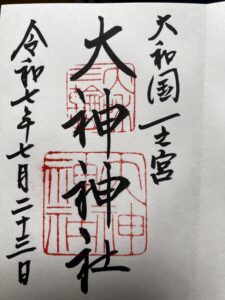 大和国一之宮
大神神社
令和七年七月二十三日
三輪
大神
神社